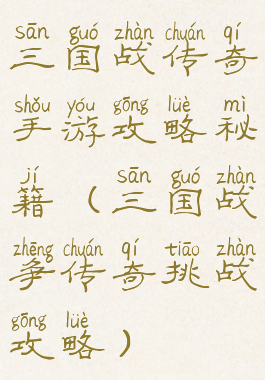 sān guó zhàn chuán qí
三国战传奇
shǒu yóu gōng lüè mì
手游攻略秘
jí sān guó zhàn
籍（三国战
zhēng chuán qí tiāo zhàn
争传奇挑战
gōng lüè
攻略）